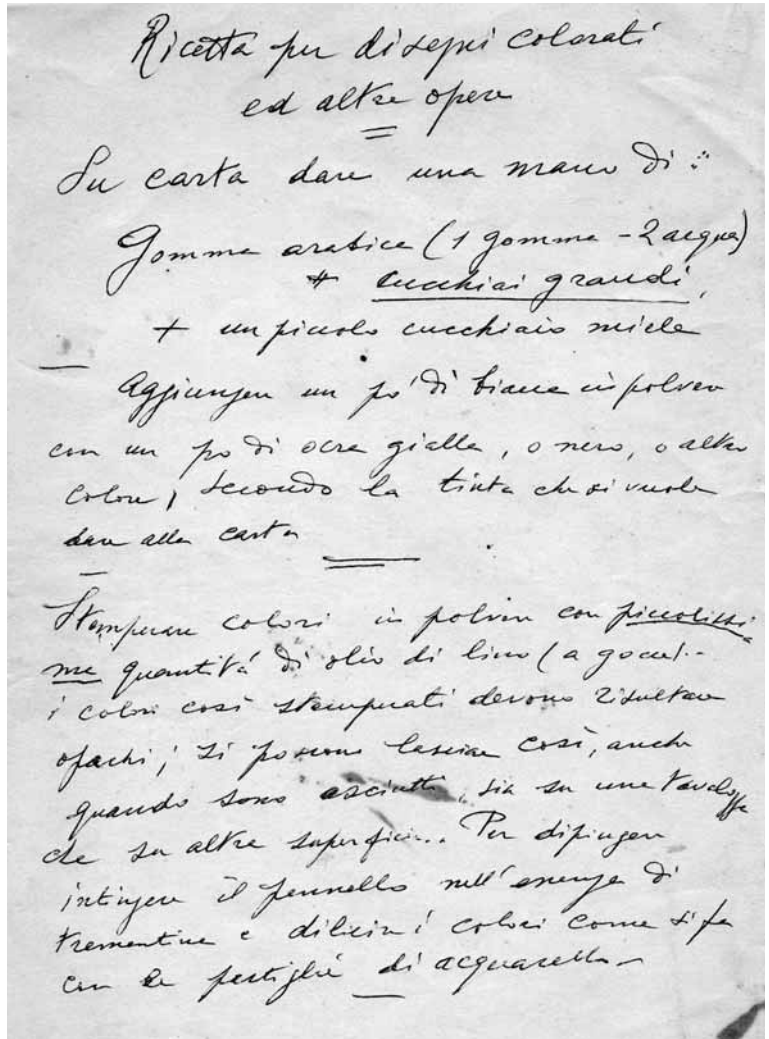 Ricetta per disegni colorati
ed altre opere
Su carta dare una mano di:
Gomma arabica (1 gomma - 2 acqua)
cucchiai grandi,
+ un piccolo cucchiaio miele
Aggiungere un po' di biacca in polvere
con un po di ocra gialla, o nero, o altro
colore, secondo la tinta che si vuole
dare alla carta
Stemperare colori in polvere con piccolissi-
me quantitá di olio di lino (a gocce) -
i colori così stemperati devono risultare
opachi; si possono lasciare così, anche
quando sono asciutti, sia su una tavolozza
che su altre superfici.. Per dipingere
intingere il pennello nell'essenza di
trementina e diluire i colori come si fa
con le pastiglie di acquarello -